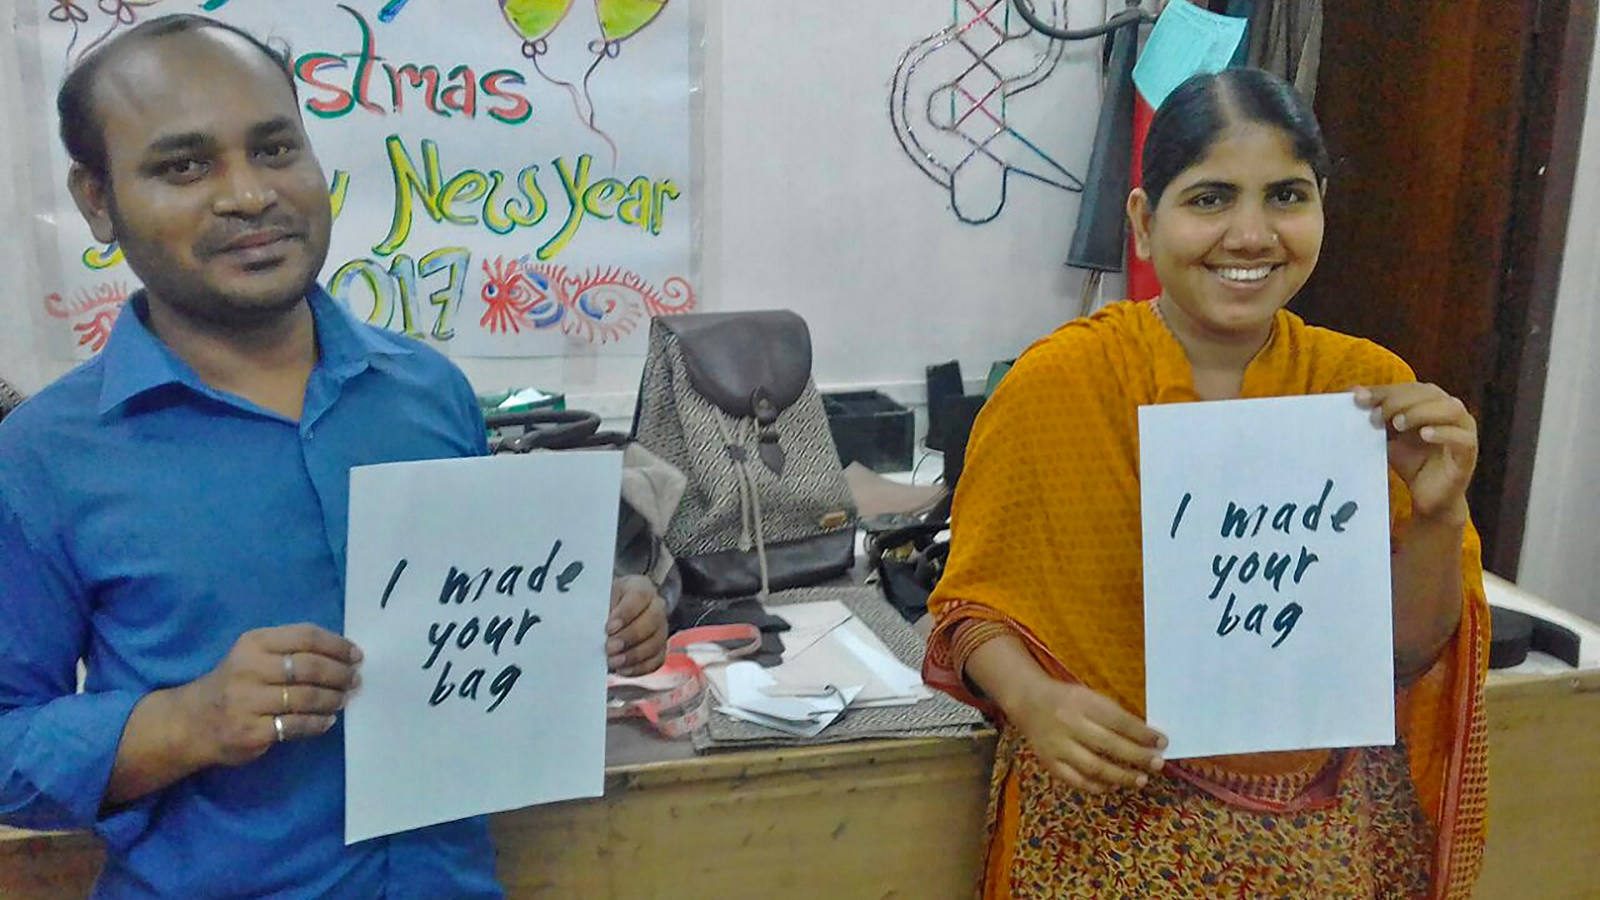 New Year
2017
I made
your
bag
I made
your
bag